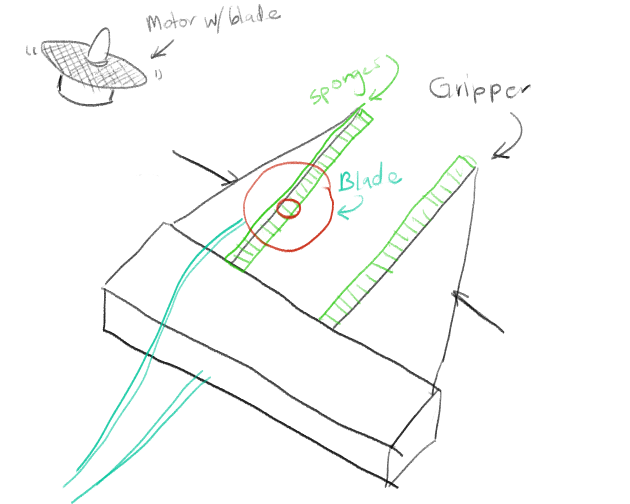 Motor w/blade
sponges
Gripper
Blade